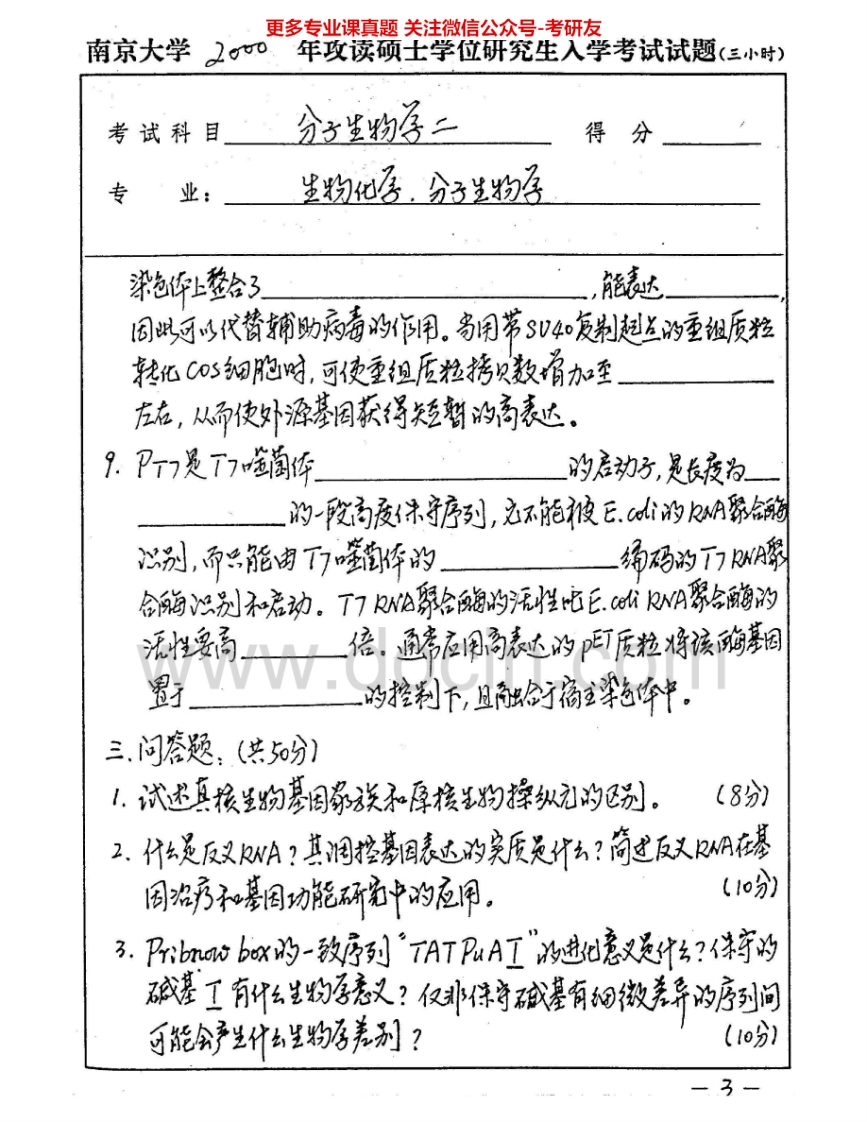 更多专业课真题 关注微信公众号-考研友
南京大学 2000 年攻读硕士学位研究生入学考试试题(三小时)
考试科目 分子生物学二 得 分
专 业: 生物化学. 分子生物学
染色体上整合了 ,能表达 ,
因此可以代替辅助病毒的作用。当用带SV40复制起点的重组质粒
转化COS细胞时,可使重组质粒拷贝数增加至
左右,从而使外源基因获得短暂的高表达。
9. PT7是T7噬菌体 的启动子,是长度为
的一段高度保守序列,它不能被E.coli的RNA聚合酶
识别,而只能由T7噬菌体的 编码的T7 RNA聚
合酶识别和启动。T7 RNA聚合酶的活性比E.coli RNA聚合酶的
活性要高 倍。通常应用高表达的pET质粒将该酶基因
置于 的控制下,且融合于宿主染色体中。
www.docin.com
三.问答题:(共50分)
1. 试述真核生物基因家族和原核生物操纵元的区别。 (8分)
2. 什么是反义RNA?其调控基因表达的实质是什么?简述反义RNA在基
因治疗和基因功能研究中的应用。 (10分)
3. Pribnow box的一致序列“TATPuAT”的进化意义是什么?保守的
碱基T有什么生物学意义?仅非保守碱基有细微差异的序列间
可能会产生什么生物学差别? (10分)
— 3 —